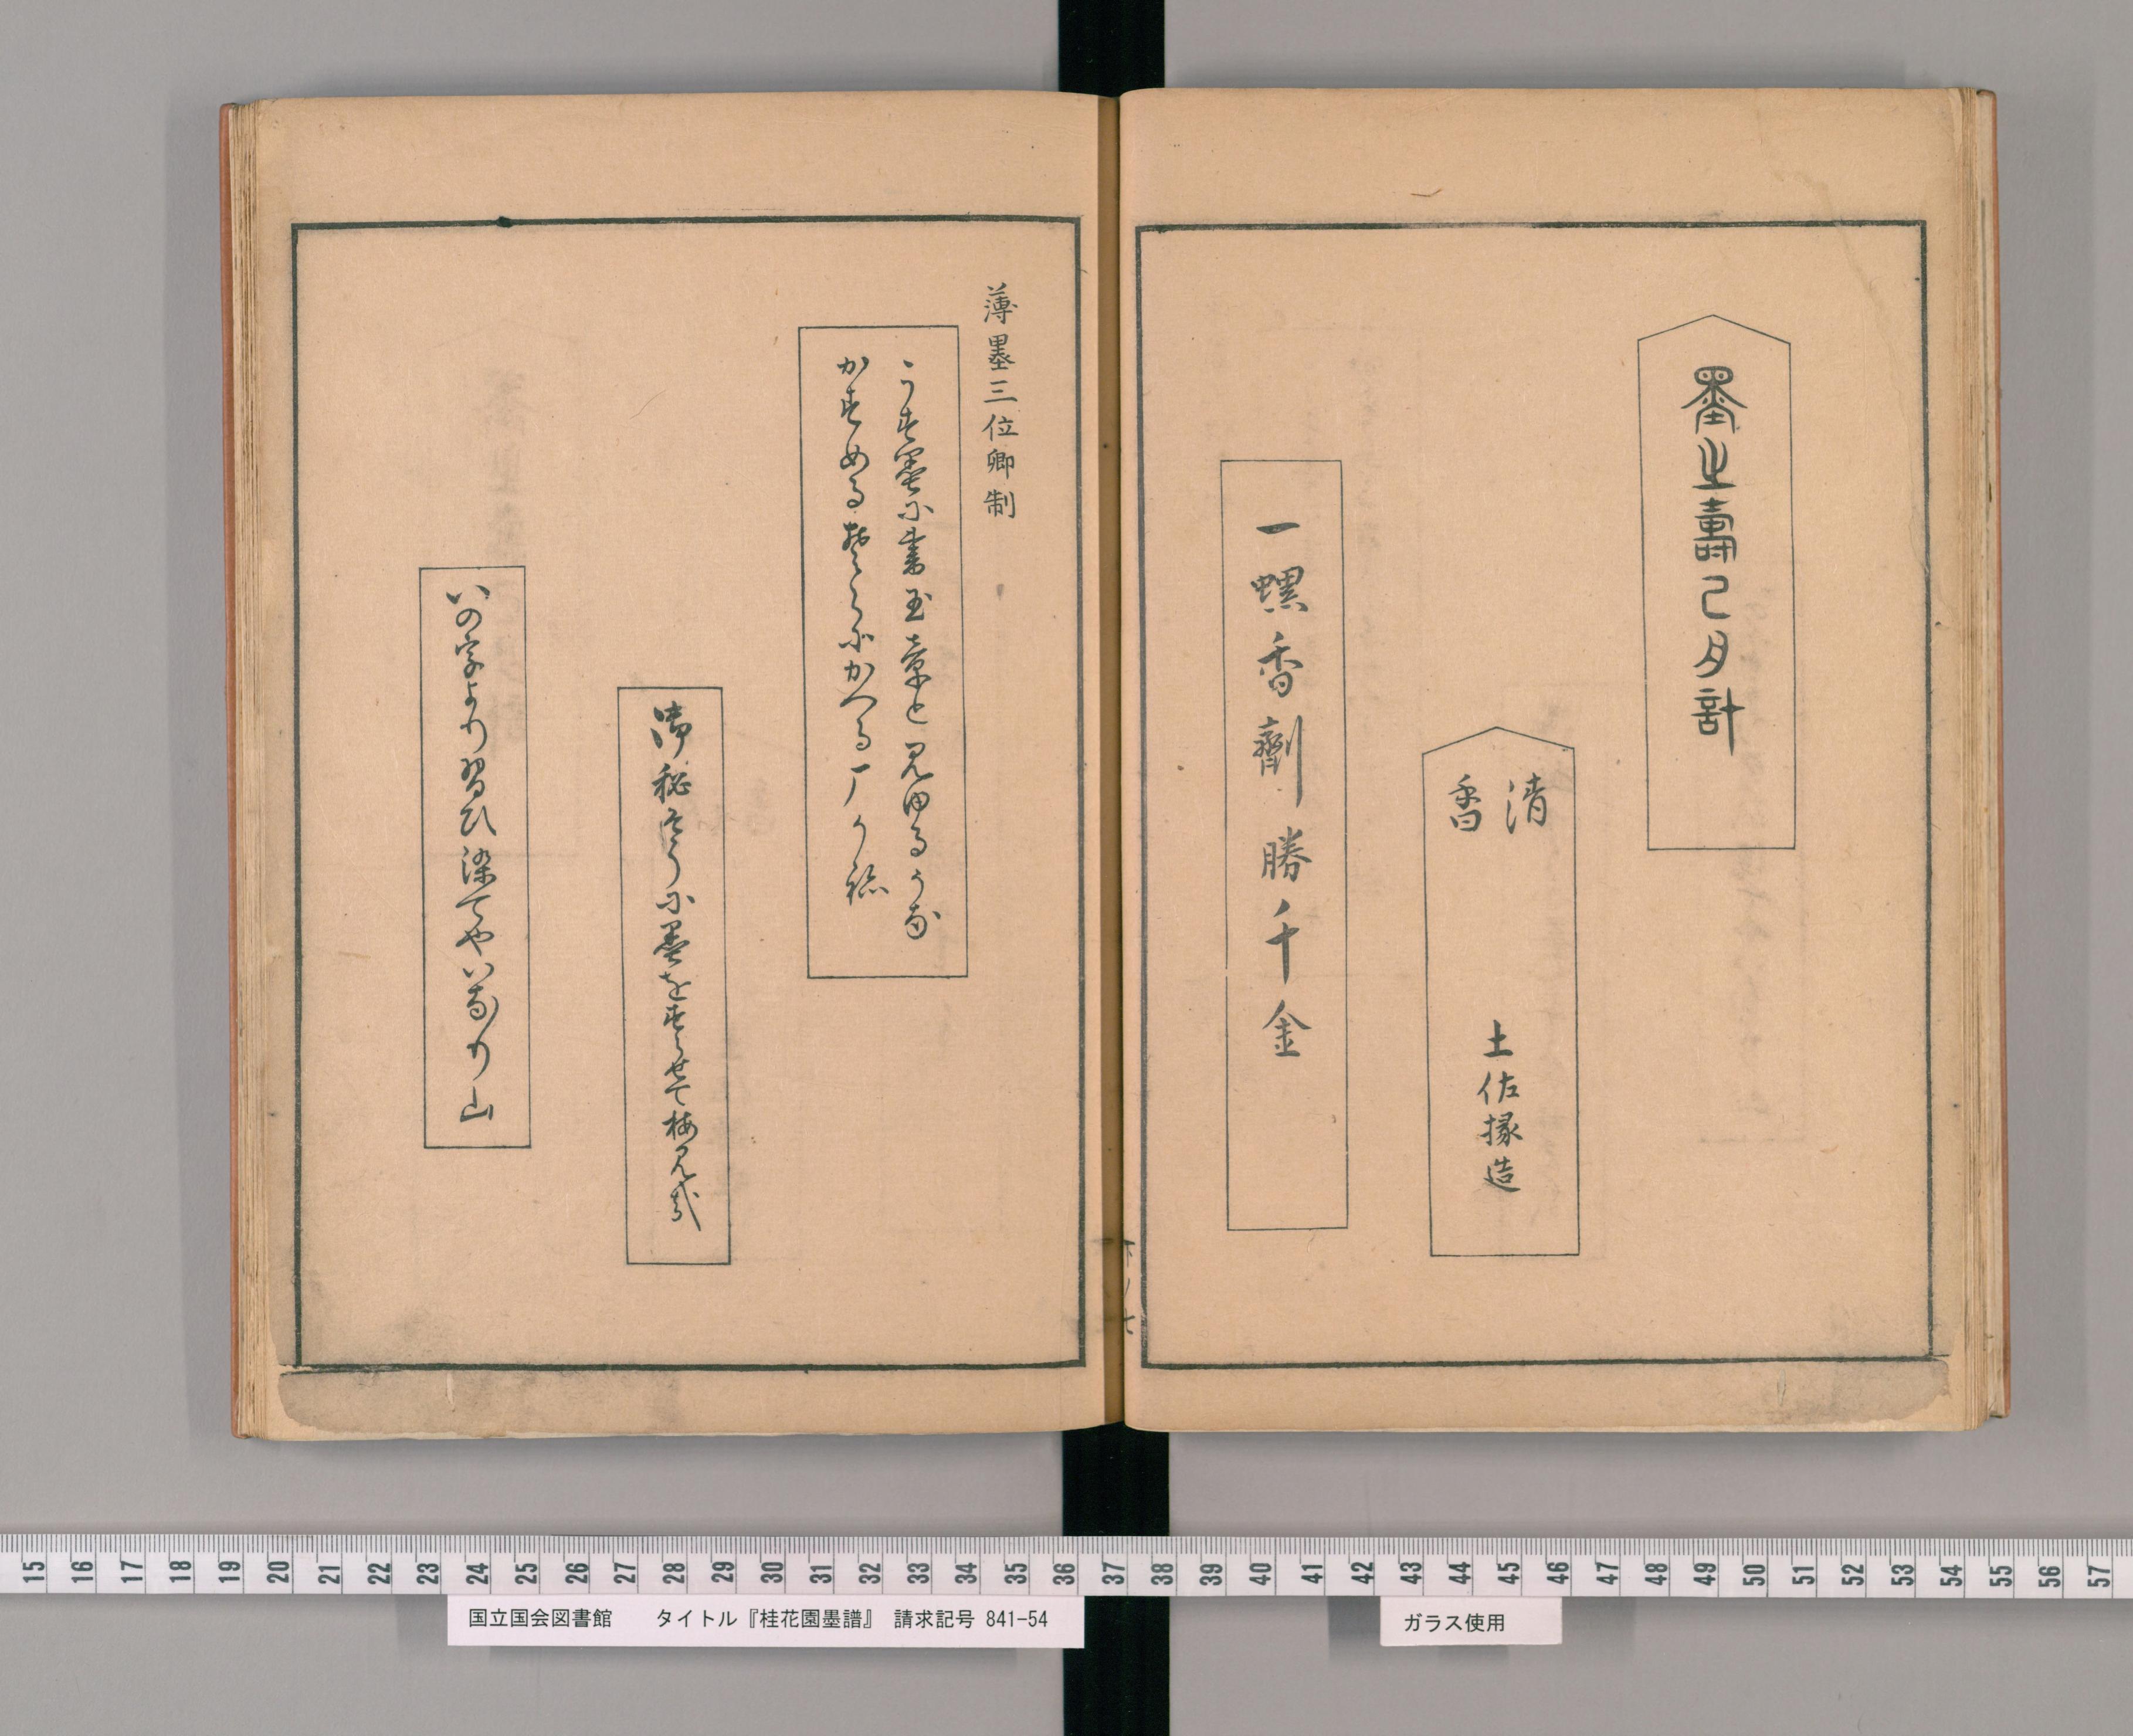 墨之壽㠯月計
清香
土佐掾造
一螺香劑勝千金
下ノ七
薄墨三位卿制
うす墨に書玉章と見ゆるかな
かすめるそらにかへる厂かね
御秘そうに墨をすらせて梅見哉
いの字より習ひ染てやいなり山
15 16 17 18 19 20 21 22 23 24 25 26 27 28 29 30 31 32 33 34 35 36 37 38 39 40 41 42 43 44 45 46 47 48 49 50 51 52 53 54 55 56 57
国立国会図書館　タイトル『桂花園墨譜』　請求記号 841-54
ガラス使用